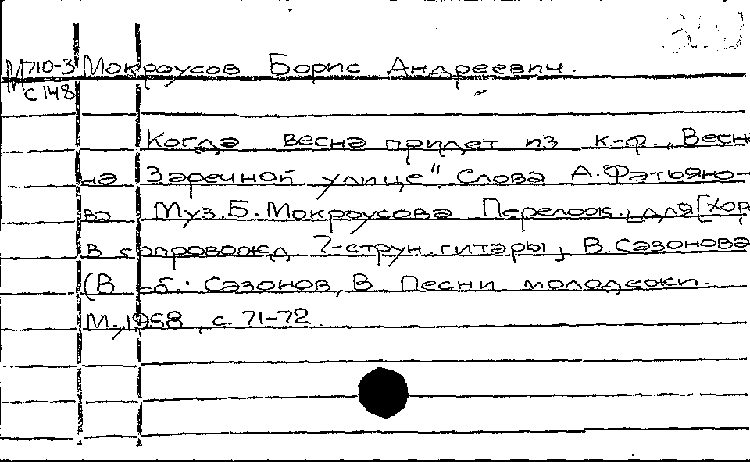 М710-3 Мокроусов Борис Андреевич.
С148
Когда весна придет из к-ф „Весна
на Заречной улице". Слова А. Фатьяно-
ва Муз. Б. Мокроусова Перелож. для [хор
в сопровожд. 7-струн. гитары] В. Сазонова
(В сб.: Сазонов, В. Песни молодежи.
М., 1958, с. 71-72.